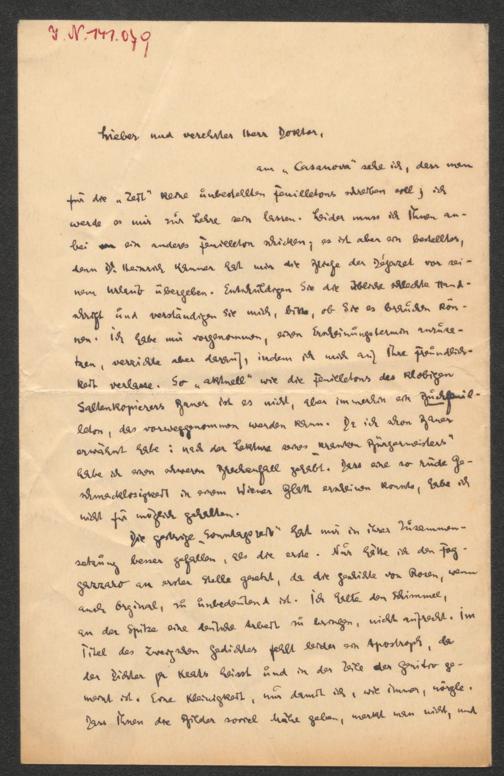 J. N. 141.079
Lieber und verehrter Herr Doktor,
am „Casanova" sehe ich, dass man
für die „Zeit" keine unbestellten Feuilletons schreiben soll; ich
werde es mir zur Lehre sein lassen. Leider muss ich Ihnen an-
bei ein anderes Feuilleton schicken; es ist aber ein bestelltes,
denn Dr Heinrich Kanner hat mir die Briefe der Déjazet vor sei-
nem Urlaub übergeben. Entschuldigen Sie die übliche schlechte Hand-
schrift und verständigen Sie mich, bitte, ob Sie es brauchen kön-
nen. Ich habe mir vorgenommen, einen Erscheinungstermin anzuse-
tzen, verzichte aber darauf, indem ich mich auf Ihre Freundlich-
keit verlasse. So „aktuell" wie die Feuilletons des klobigen
Saltenkopierers ist es nicht, aber immerhin ein Buchfeuil-
leton, das vorweggenommen werden kann. Da ich schon
erwähnt habe: nach der Lektüre eines „kranken Bürgermeisters"
habe ich einen schweren Brechanfall gehabt. Dass eine so rüde Ge-
schmacklosigkeit in einem Wiener Blatt erscheinen konnte, habe ich
nicht für möglich gehalten.
Die gestrige „Sonntagszeit" hat mir in ihrer Zusammen-
setzung besser gefallen, als die erste. Nur hätte ich den Fog-
gazzaro an erster Stelle gesetzt, da die Gedichte von Rosen, wenn
auch Original, zu unbedeutend ist. Ich halte den Schimmel,
an der Spitze eine deutsche Arbeit zu bringen, nicht aufrecht. Im
Titel des Zweigschen Gedichtes fehlt leider ein Apostroph, da
der Dichter ja Keats heisst und in der Zeile der Genitiv ge-
meint ist. Eine Kleinigkeit, nur damit ich, wie immer, nörgle.
Dass Ihnen die Bilder soviel Mühe geben, merkt man nicht, und